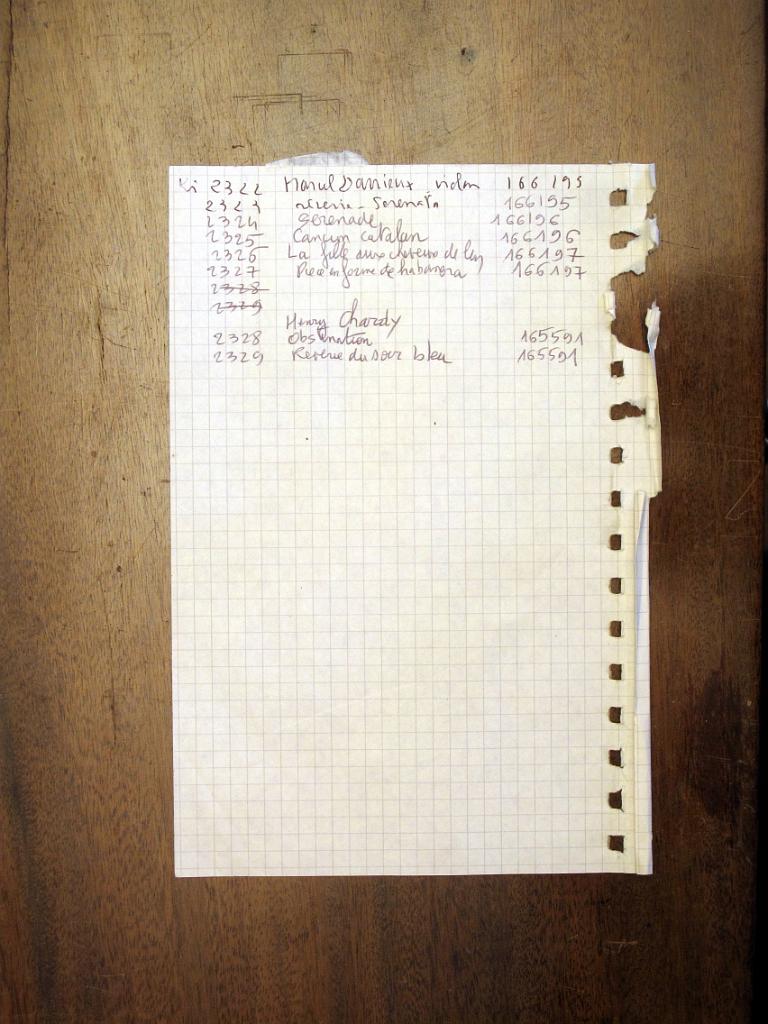 Ki 2322 Marcel Darrieux, violon 166195
2323 - Serenata 166195
2324 Serenade 166196
2325 Cançun catalan 166196
2326 La fille aux cheveux de lin 166197
2327 Piece en forme de habanera 166197
2328
2329
Henry Chardy
2328 Obstination 165591
2329 Reverie du soir bleu 165591